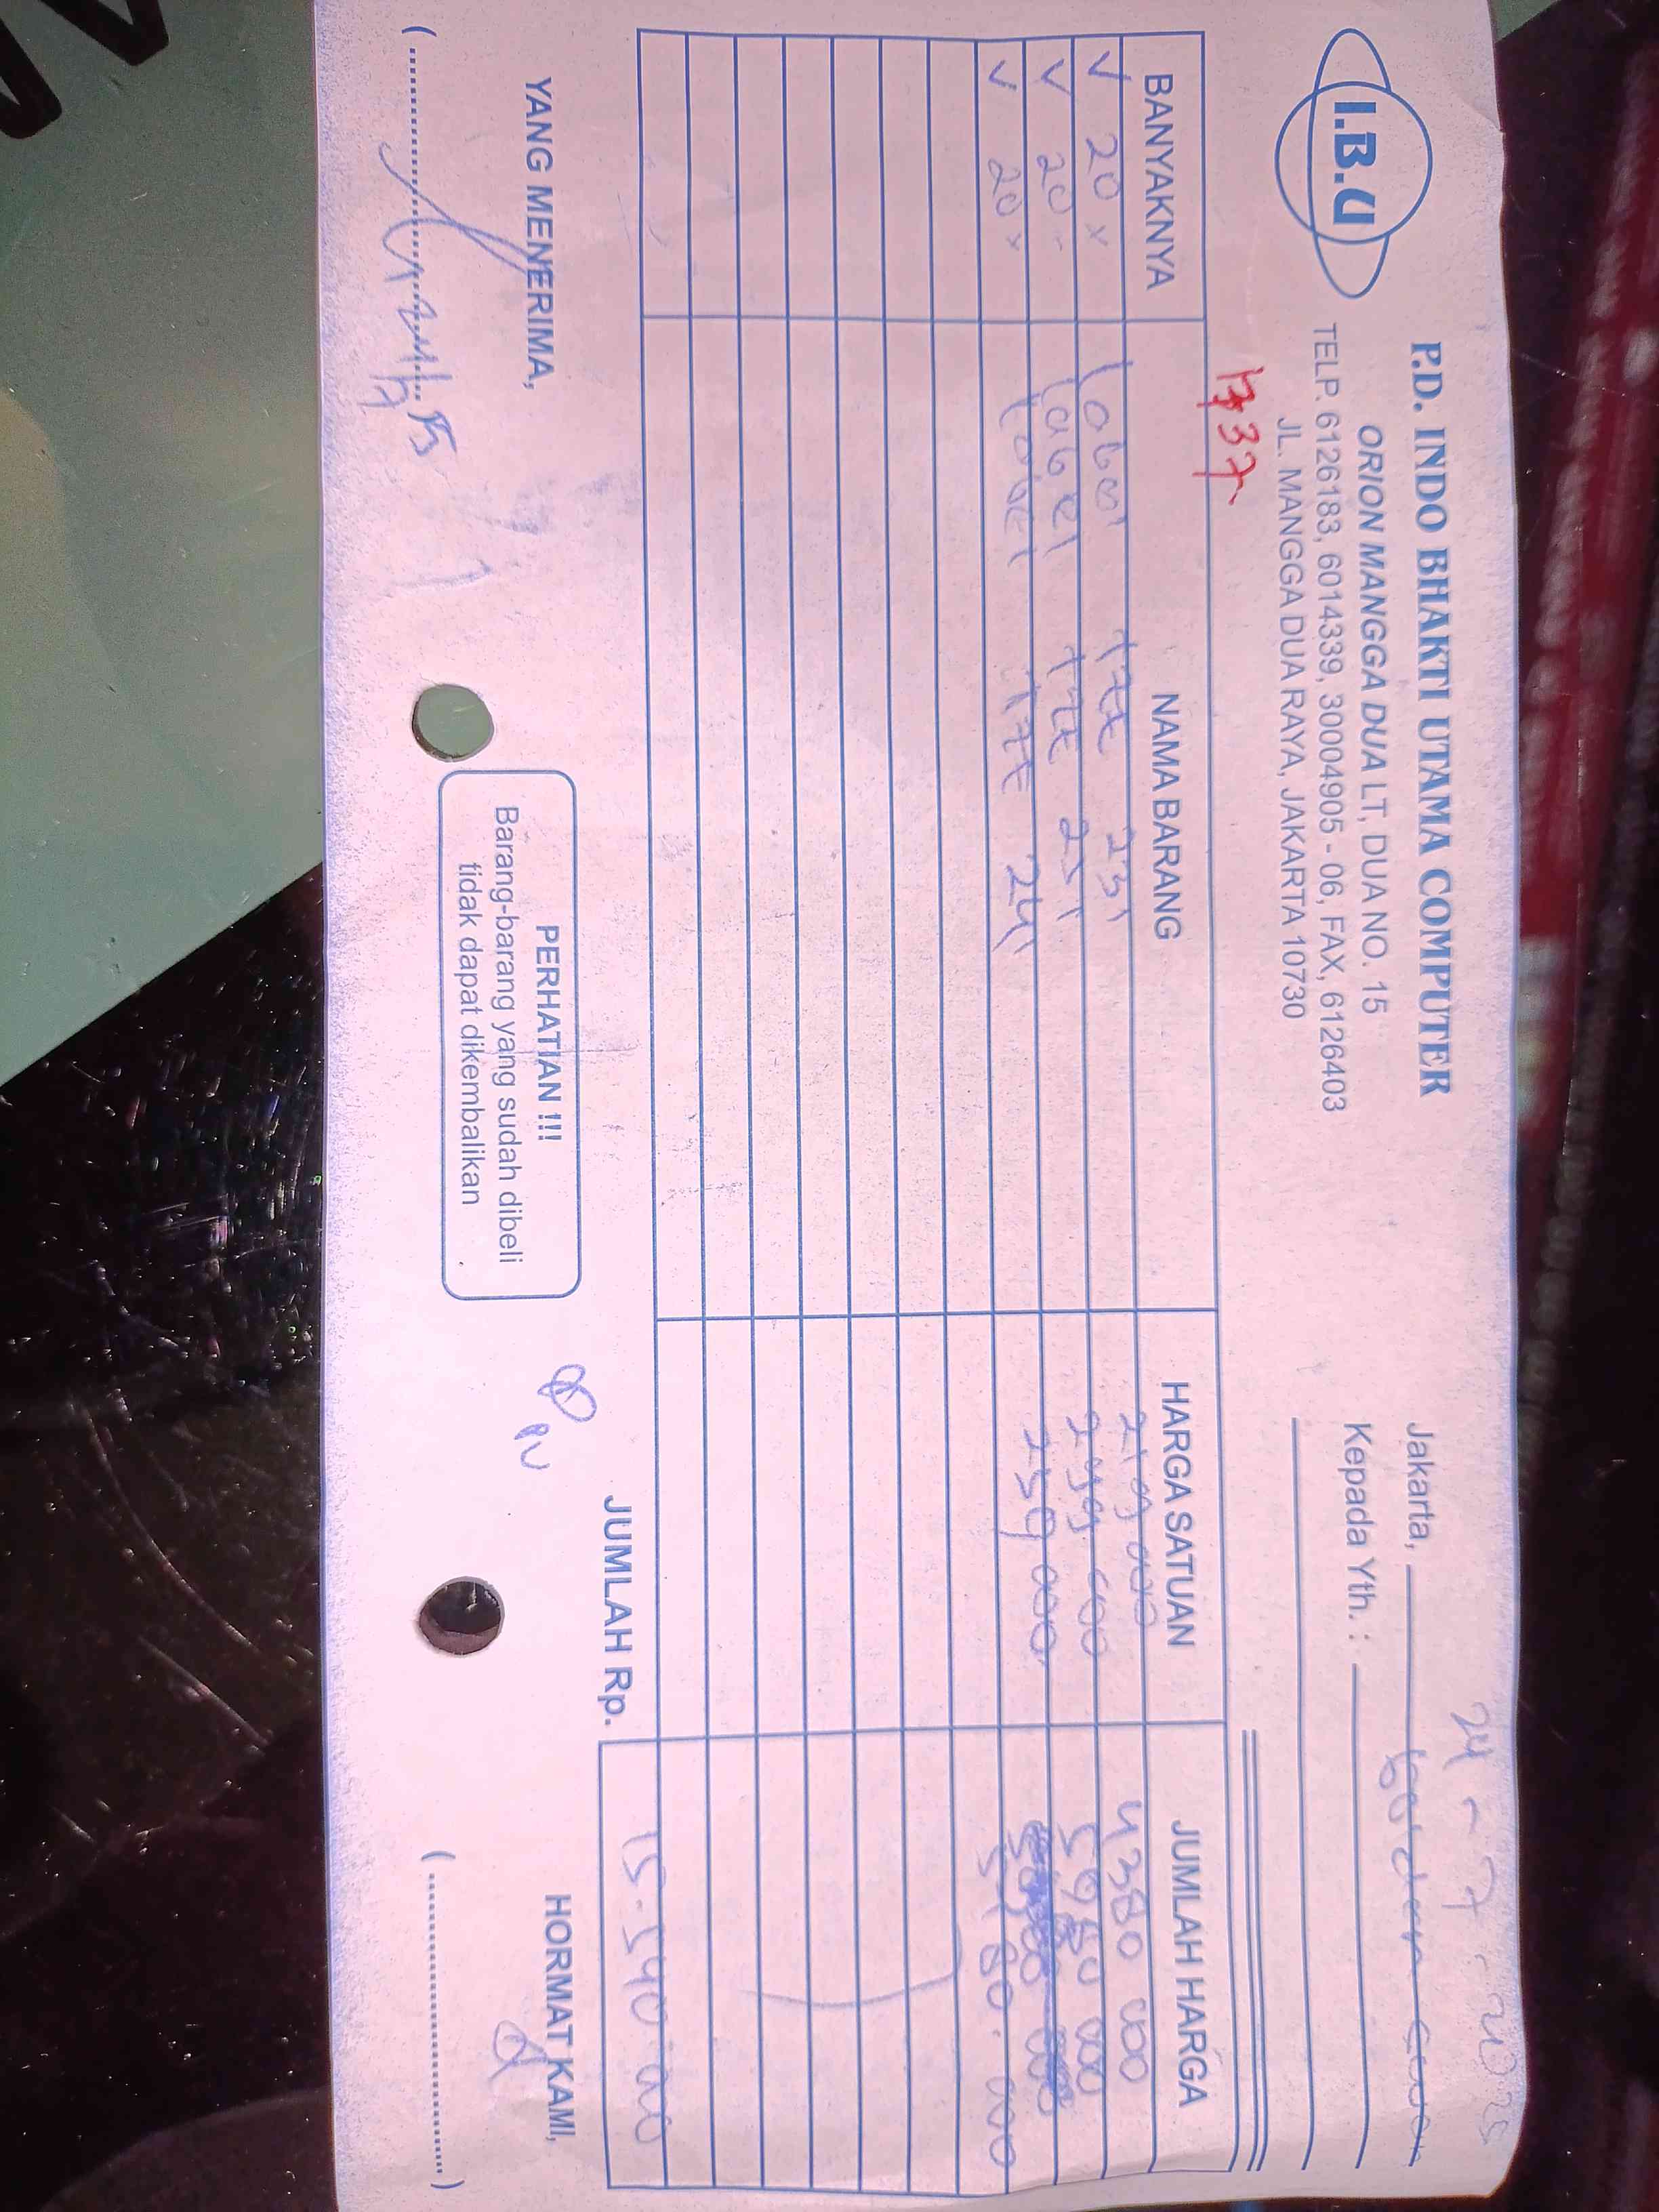 I.B.U
P.D. INDO BHAKTI UTAMA COMPUTER
ORION MANGGA DUA LT, DUA NO. 15
TELP. 6126183, 6014339, 30004905 - 06, FAX, 6126403
JL. MANGGA DUA RAYA, JAKARTA 10730
24 - 7 - 2025
Jakarta,
Kepada Yth. :
37
BANYAKNYA NAMA BARANG HARGA SATUAN JUMLAH HARGA
20 x label tze 231 219 000 4380 000
20 - label tze 251 299.000 5980 000
20 x label tze 241 259 000 5180.000
JUMLAH Rp. 15.540.000
YANG MENERIMA,
PERHATIAN !!!
Barang-barang yang sudah dibeli
tidak dapat dikembalikan
HORMAT KAMI,